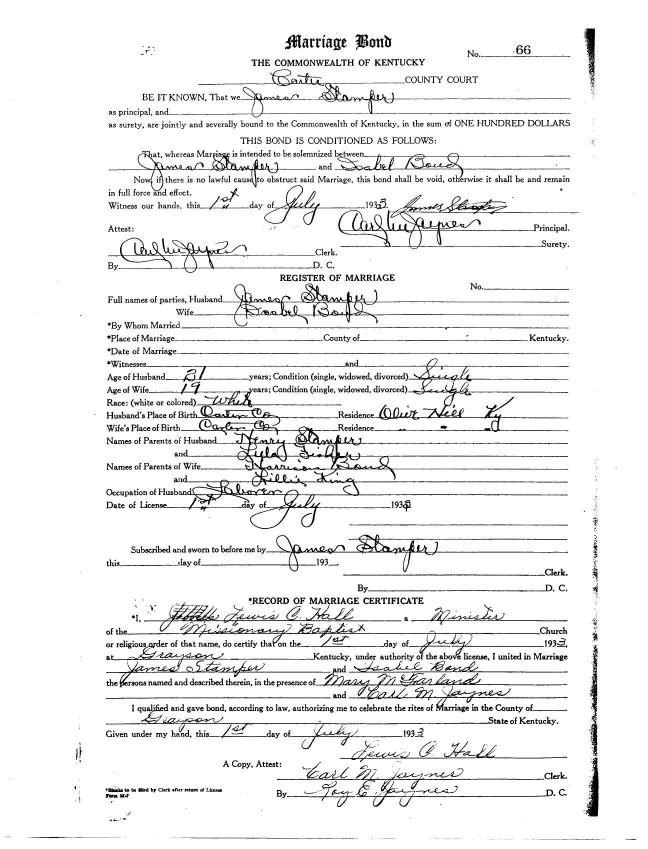 Marriage Bond
No. 66
THE COMMONWEALTH OF KENTUCKY
Carter COUNTY COURT
BE IT KNOWN, That we James Stamper
as principal, and
as surety, are jointly and severally bound to the Commonwealth of Kentucky, in the sum of ONE HUNDRED DOLLARS
THIS BOND IS CONDITIONED AS FOLLOWS:
That, whereas Marriage is intended to be solemnized between
James Stamper and Isabel Bond
Now, if there is no lawful cause to obstruct said Marriage, this bond shall be void, otherwise it shall be and remain
in full force and effect.
Witness our hands, this 1st day of July 1933 James Stamper
Attest: Carl M Jaynes Principal.
Surety.
Carl M Jaynes Clerk.
By D. C.
REGISTER OF MARRIAGE
No.
Full names of parties, Husband James Stamper
Wife Isabel Bond
*By Whom Married
*Place of Marriage County of Kentucky.
*Date of Marriage
*Witnesses and
Age of Husband 21 years; Condition (single, widowed, divorced) Single
Age of Wife 19 years; Condition (single, widowed, divorced) Single
Race: (white or colored) White
Husband's Place of Birth Carter Co Residence Olive Hill Ky
Wife's Place of Birth Carter Co Residence " " "
Names of Parents of Husband Henry Stamper
and Fisher
Names of Parents of Wife Harrison Bond
and Lillie King
Occupation of Husband Laborer
Date of License 1st day of July 1933
Subscribed and sworn to before me by James Stamper
this day of 193
Clerk.
By D. C.
*RECORD OF MARRIAGE CERTIFICATE
*I, Lewis C. Hall a Minister
of the Missionary Baptist Church
or religious order of that name, do certify that on the 1st day of July 1933.
at Grayson Kentucky, under authority of the above license, I united in Marriage
James Stamper and Isabel Bond
the persons named and described therein, in the presence of Mary McFarland
and Carl M. Jaynes
I qualified and gave bond, according to law, authorizing me to celebrate the rites of Marriage in the County of
Grayson State of Kentucky.
Given under my hand, this 1st day of July 1933
Lewis C Hall
A Copy, Attest: Carl M. Jaynes Clerk.
By Roy E. Jaynes D. C.
*Blanks to be filled by Clerk after return of License
Form M-7